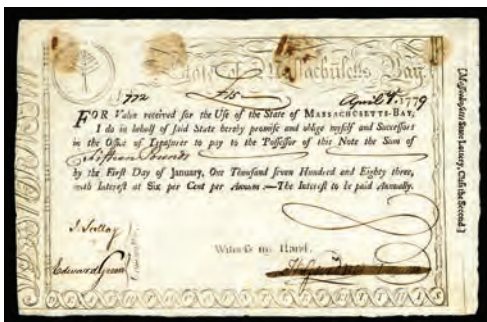 State of Massachusetts Bay.
772 £15 April 1779
FOR Value received for the Use of the State of MASSACHUSETTS-BAY,
I do in behalf of said State hereby promise and oblige myself and Successors
in the Office of Treasurer to pay to the Possessor of this Note the Sum of
Fifteen Pounds
by the First Day of January, One Thousand Seven Hundred and Eighty three,
with Interest at Six per Cent per Annum :—The Interest to be paid Annually.
J. Scollay
Witness my Hand.
Edward Green
[Massachusetts State Lottery, Class the Second.]